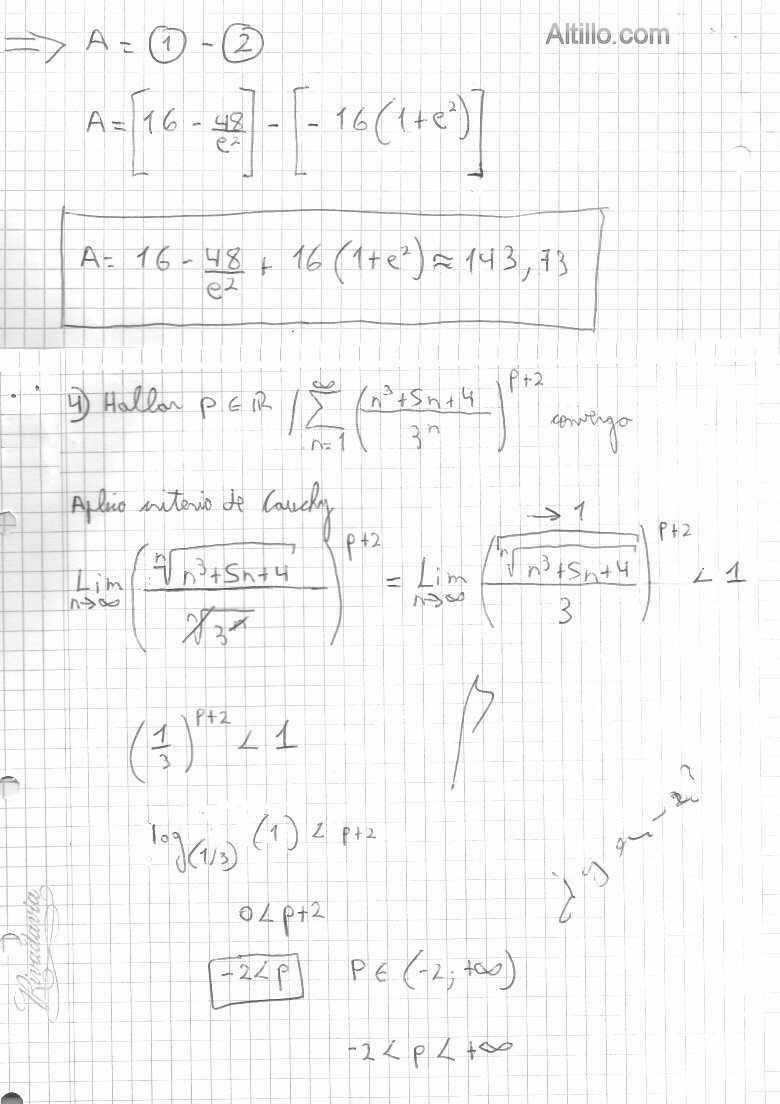 Altillo.com
⟹ A = ① - ②
A = [16 - 48/e²] - [- 16 (1+e²)]
A = 16 - 48/e² + 16 (1+e²) ≈ 143,73
4) Hallar p ∈ ℝ / ∑_{n=1}^{∞} ((n³+5n+4)/3ⁿ)^{p+2} converga
Aplico criterio de Cauchy
Lim_{n→∞} (ⁿ√(n³+5n+4) / ⁿ√(3ⁿ))^{p+2} = Lim_{n→∞} (ⁿ√(n³+5n+4) / 3)^{p+2} < 1
→ 1
(1/3)^{p+2} < 1
log_(1/3) (1) < p+2
0 < p+2
-2 < p P ∈ (-2; +∞)
-2 < p < +∞
Rivadavia